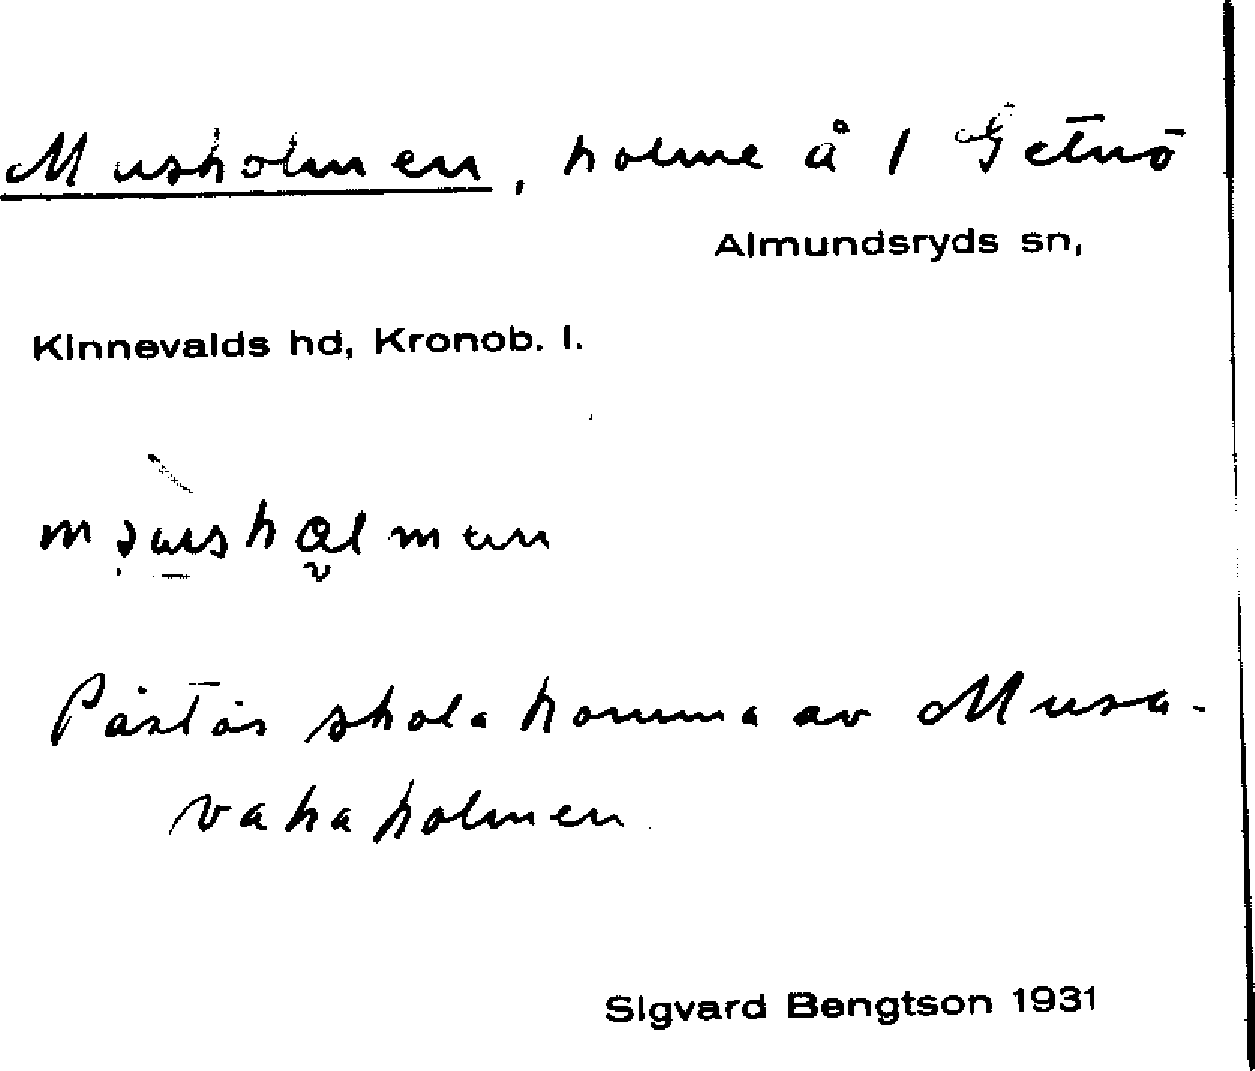 Musholmen, holme å 1 Getnö
Almundsryds sn,
Kinnevalds hd, Kronob. l.
Påstås skola komma av Musa-
vakaholmen.
Sigvard Bengtson 1931